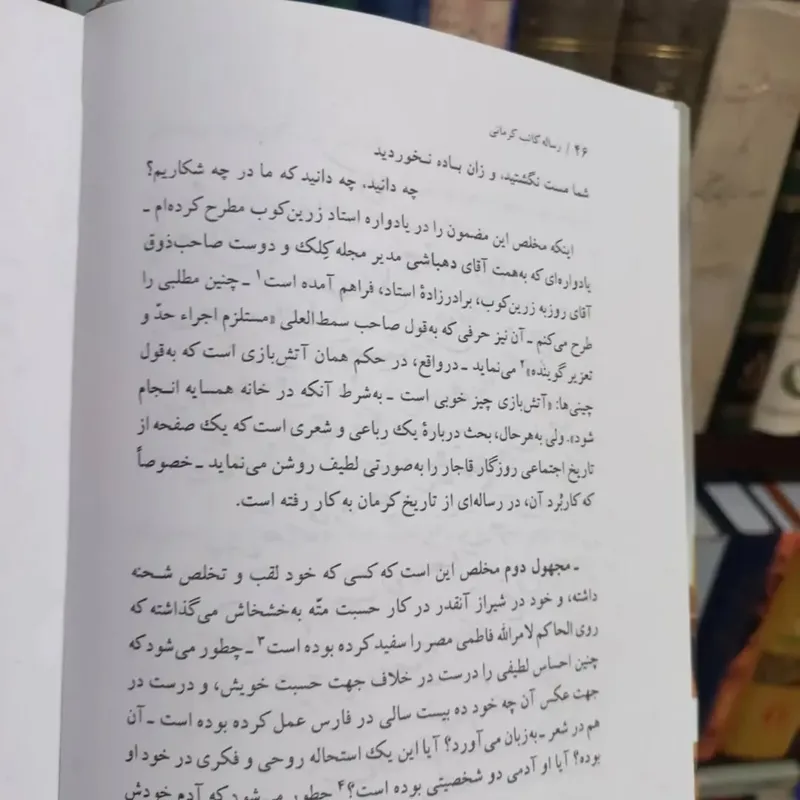 ۴۶ / رساله کاتب کرمانی
شما مست نگشتید، و زان باده نخوردید
چه دانید، چه دانید که ما در چه شکاریم؟
اینکه مخلص این مضمون را در یادواره استاد زرین‌کوب مطرح کرده‌ام ـ
یادواره‌ای که به‌همت آقای دهباشی مدیر مجله کِلک و دوست صاحب‌ذوق
آقای روزبه زرین‌کوب، برادرزادهٔ استاد، فراهم آمده است۱ ـ چنین مطلبی را
طرح می‌کنم ـ آن نیز حرفی که به‌قول صاحب سمط‌العلی «مستلزم اجراء حدّ و
تعزیر گوینده»۲ می‌نماید ـ درواقع، در حکم همان آتش‌بازی است که به‌قول
چینی‌ها: «آتش‌بازی چیز خوبی است ـ به‌شرط آنکه در خانه همسایه انجام
شود». ولی به‌هرحال، بحث دربارهٔ یک رباعی و شعری است که یک صفحه از
تاریخ اجتماعی روزگار قاجار را به‌صورتی لطیف روشن می‌نماید ـ خصوصاً
که کاربُرد آن، در رساله‌ای از تاریخ کرمان به کار رفته است.
ـ مجهول دوم مخلص این است که کسی که خود لقب و تخلص شحنه
داشته، و خود در شیراز آنقدر در کار حسبت متّه به‌خشخاش می‌گذاشته که
روی الحاکم لامرالله فاطمی مصر را سفید کرده بوده است۳ ـ چطور می‌شود که
چنین احساس لطیفی را درست در خلاف جهت حسبت خویش، و درست در
جهت عکس آن چه خود ده بیست سالی در فارس عمل کرده بوده است ـ آن
هم در شعر ـ به‌زبان می‌آورد؟ آیا این یک استحاله روحی و فکری در خود او
بوده؟ آیا او آدمی دو شخصیتی بوده است؟۴ چطور می‌شود که آدم خودش